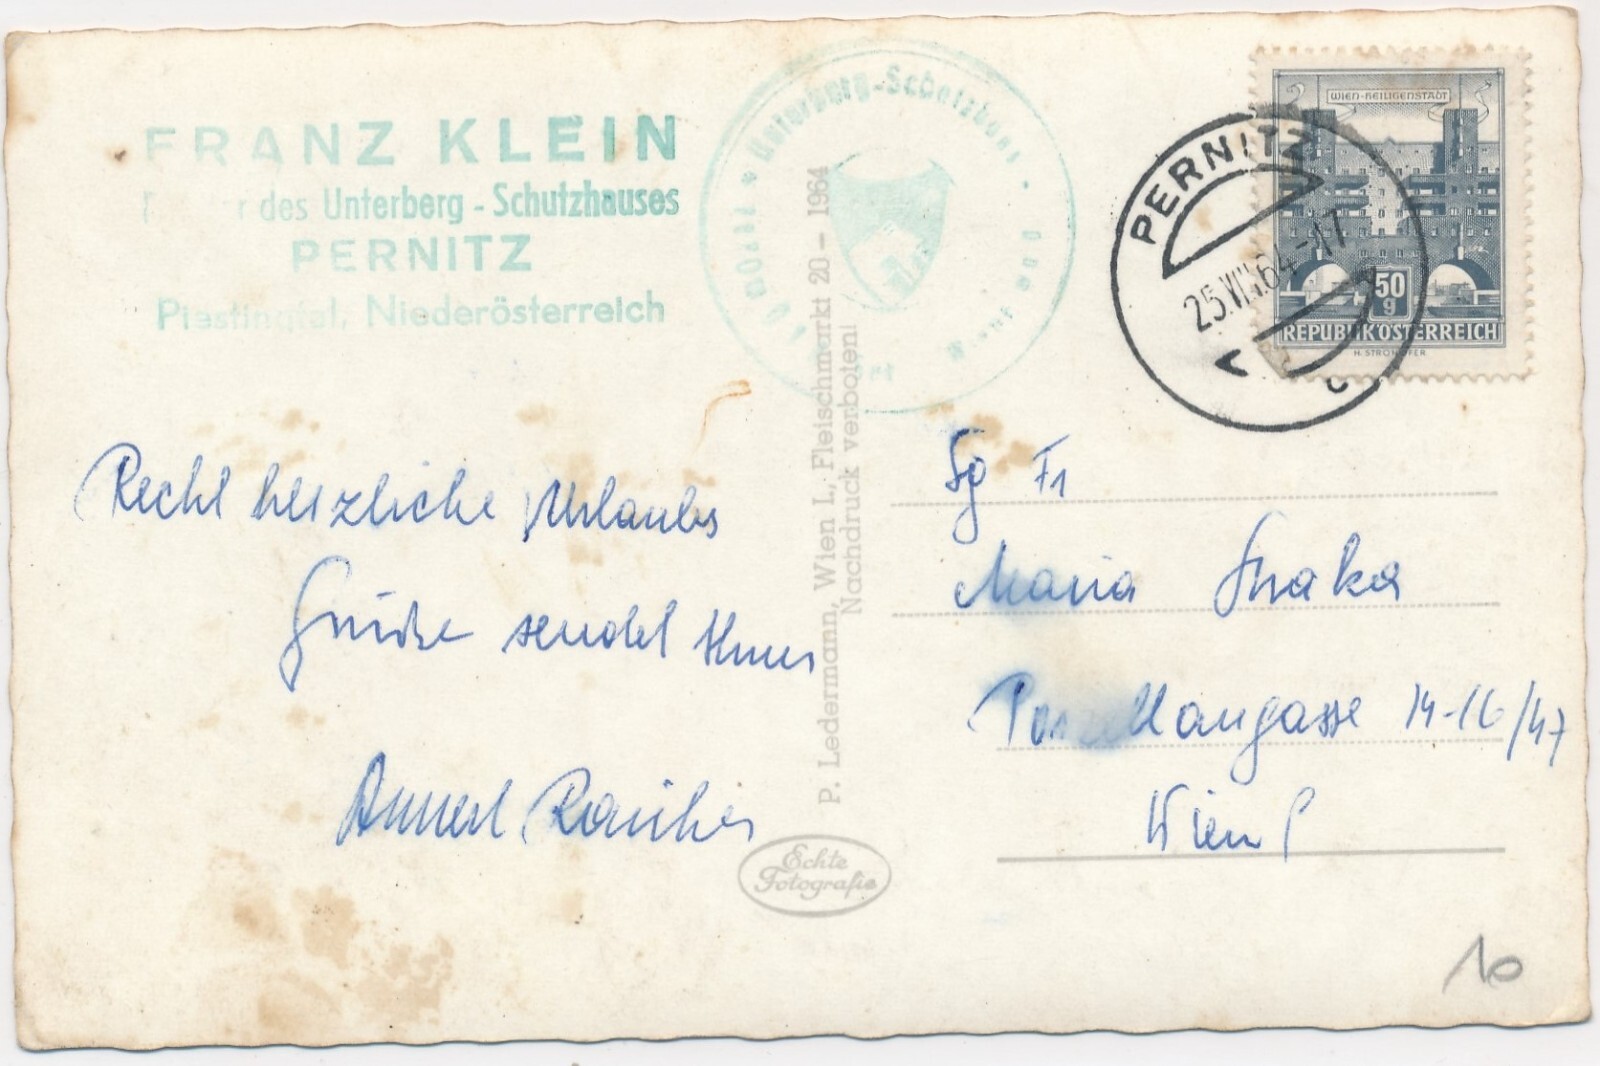 FRANZ KLEIN
des Unterberg - Schutzhauses
PERNITZ
Piestingtal, Niederösterreich
Unterberg-Schutzhaus
1342 m
WIEN-HEILIGENSTADT
50 g
REPUBLIK ÖSTERREICH
H. STROHOFER
PERNITZ
25.VIII.64-17
c
P. Ledermann, Wien I., Fleischmarkt 20 – 1964
Nachdruck verboten!
Recht herzliche Urlaubs
Grüße sendet Ihnen
Echte
Fotografie
Sg Fr
Maria
Porzellangasse 14-16/47
Wien
10